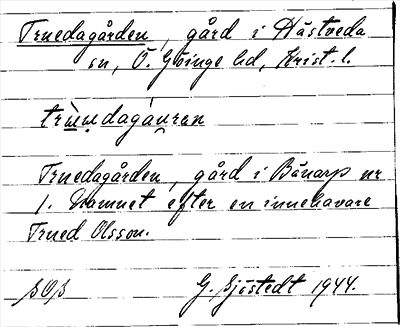 Truedagården, gård i Hästveda
sn, Ö. Göinge hd, Krist. l.
Truedagården, gård i Bånarp nr
1. Namnet efter en innehavare
Trued Olsson.
G. Sjöstedt 1944.